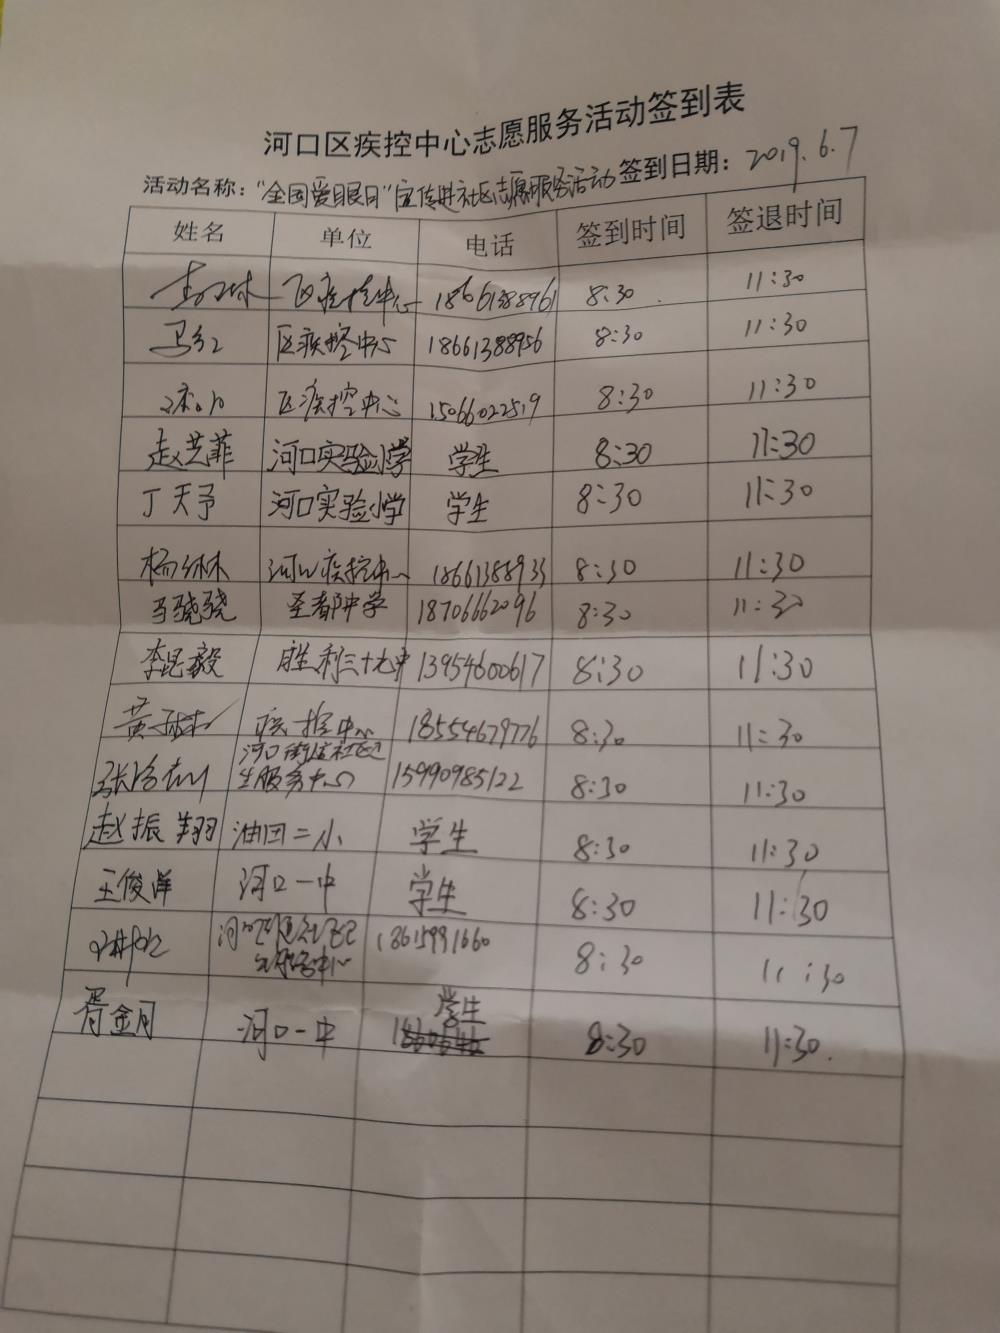 河口区疾控中心志愿服务活动签到表
活动名称："全国爱眼日"宣传进社区志愿服务活动 签到日期：2019.6.7
姓名 单位 电话 签到时间 签退时间
区疾控中心 18661388961 8:30 11:30
马红 区疾控中心 18661388956 8:30 11:30
区疾控中心 15066022519 8:30 11:30
赵芸菲 河口实验小学 学生 8:30 11:30
丁天予 河口实验小学 学生 8:30 11:30
杨林林 河口疾控中心 18661388933 8:30 11:30
马骁骁 圣都中学 18706662096 8:30 11:30
李昆毅 胜利三十九中 13954600617 8:30 11:30
黄 疾控中心 18554679776 8:30 11:30
河口街道社区卫
生服务中心 15990985122 8:30 11:30
赵振翔 油田二小 学生 8:30 11:30
王俊洋 河口一中 学生 8:30 11:30
18615991660 8:30 11:30
服务中心
学生
胥金月 河口一中 8:30 11:30